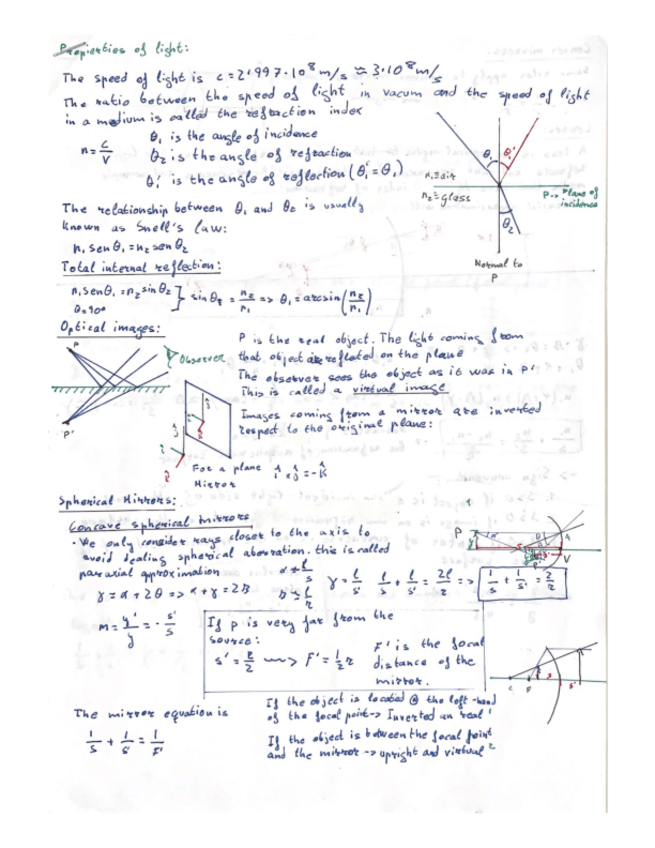 Properties of light:
The speed of light is c = 2'997·10⁸ m/s ≈ 3·10⁸ m/s
The ratio between the speed of light in vacum and the speed of light
in a medium is called the refraction index
n = c/v
θ₁ is the angle of incidence
θ₂ is the angle of refraction
θ₁' is the angle of reflection (θ₁' = θ₁)
θ₁ θ₁'
n₁ = air
n₂ = glass
P -> Plane of
incidence
θ₂
Normal to
P
The relationship between θ₁ and θ₂ is usually
known as Snell's law:
n₁ sen θ₁ = n₂ sen θ₂
Total internal reflection:
n₁ sen θ₁ = n₂ sin θ₂
θ = 90°
} sin θ = n₂/n₁ => θ₁ = arcsin (n₂/n₁)
Optical images:
P
Observer
P'
P is the real object. The light coming from
that object are reflated on the plane
The observer sees the object as it was in P'
This is called a virtual image
Images coming from a mirror are inverted
respect to the original plane:
For a plane
Mirror
i · j = -k
Spherical Mirrors:
Concave spherical mirrors
· We only consider rays closer to the axis to
avoid dealing spherical aberration. this is called
paraxial approximation
γ = α + 2θ => α + γ = 2β
α ≈ l/s
β ≈ l/r
γ = l/s' l/s + l/s' = 2l/r => 1/s + 1/s' = 2/r
P
V
m = y'/y = - s'/s
If p is very far from the
source:
s' = r/2 ~> F' = 1/2 r
F' is the focal
distance of the
mirror.
C F
The mirror equation is
1/s + 1/s' = 1/F'
If the object is located @ the left-hand
of the focal point -> Inverted an real ¹
If the object is between the focal point
and the mirror -> upright and virtual ²